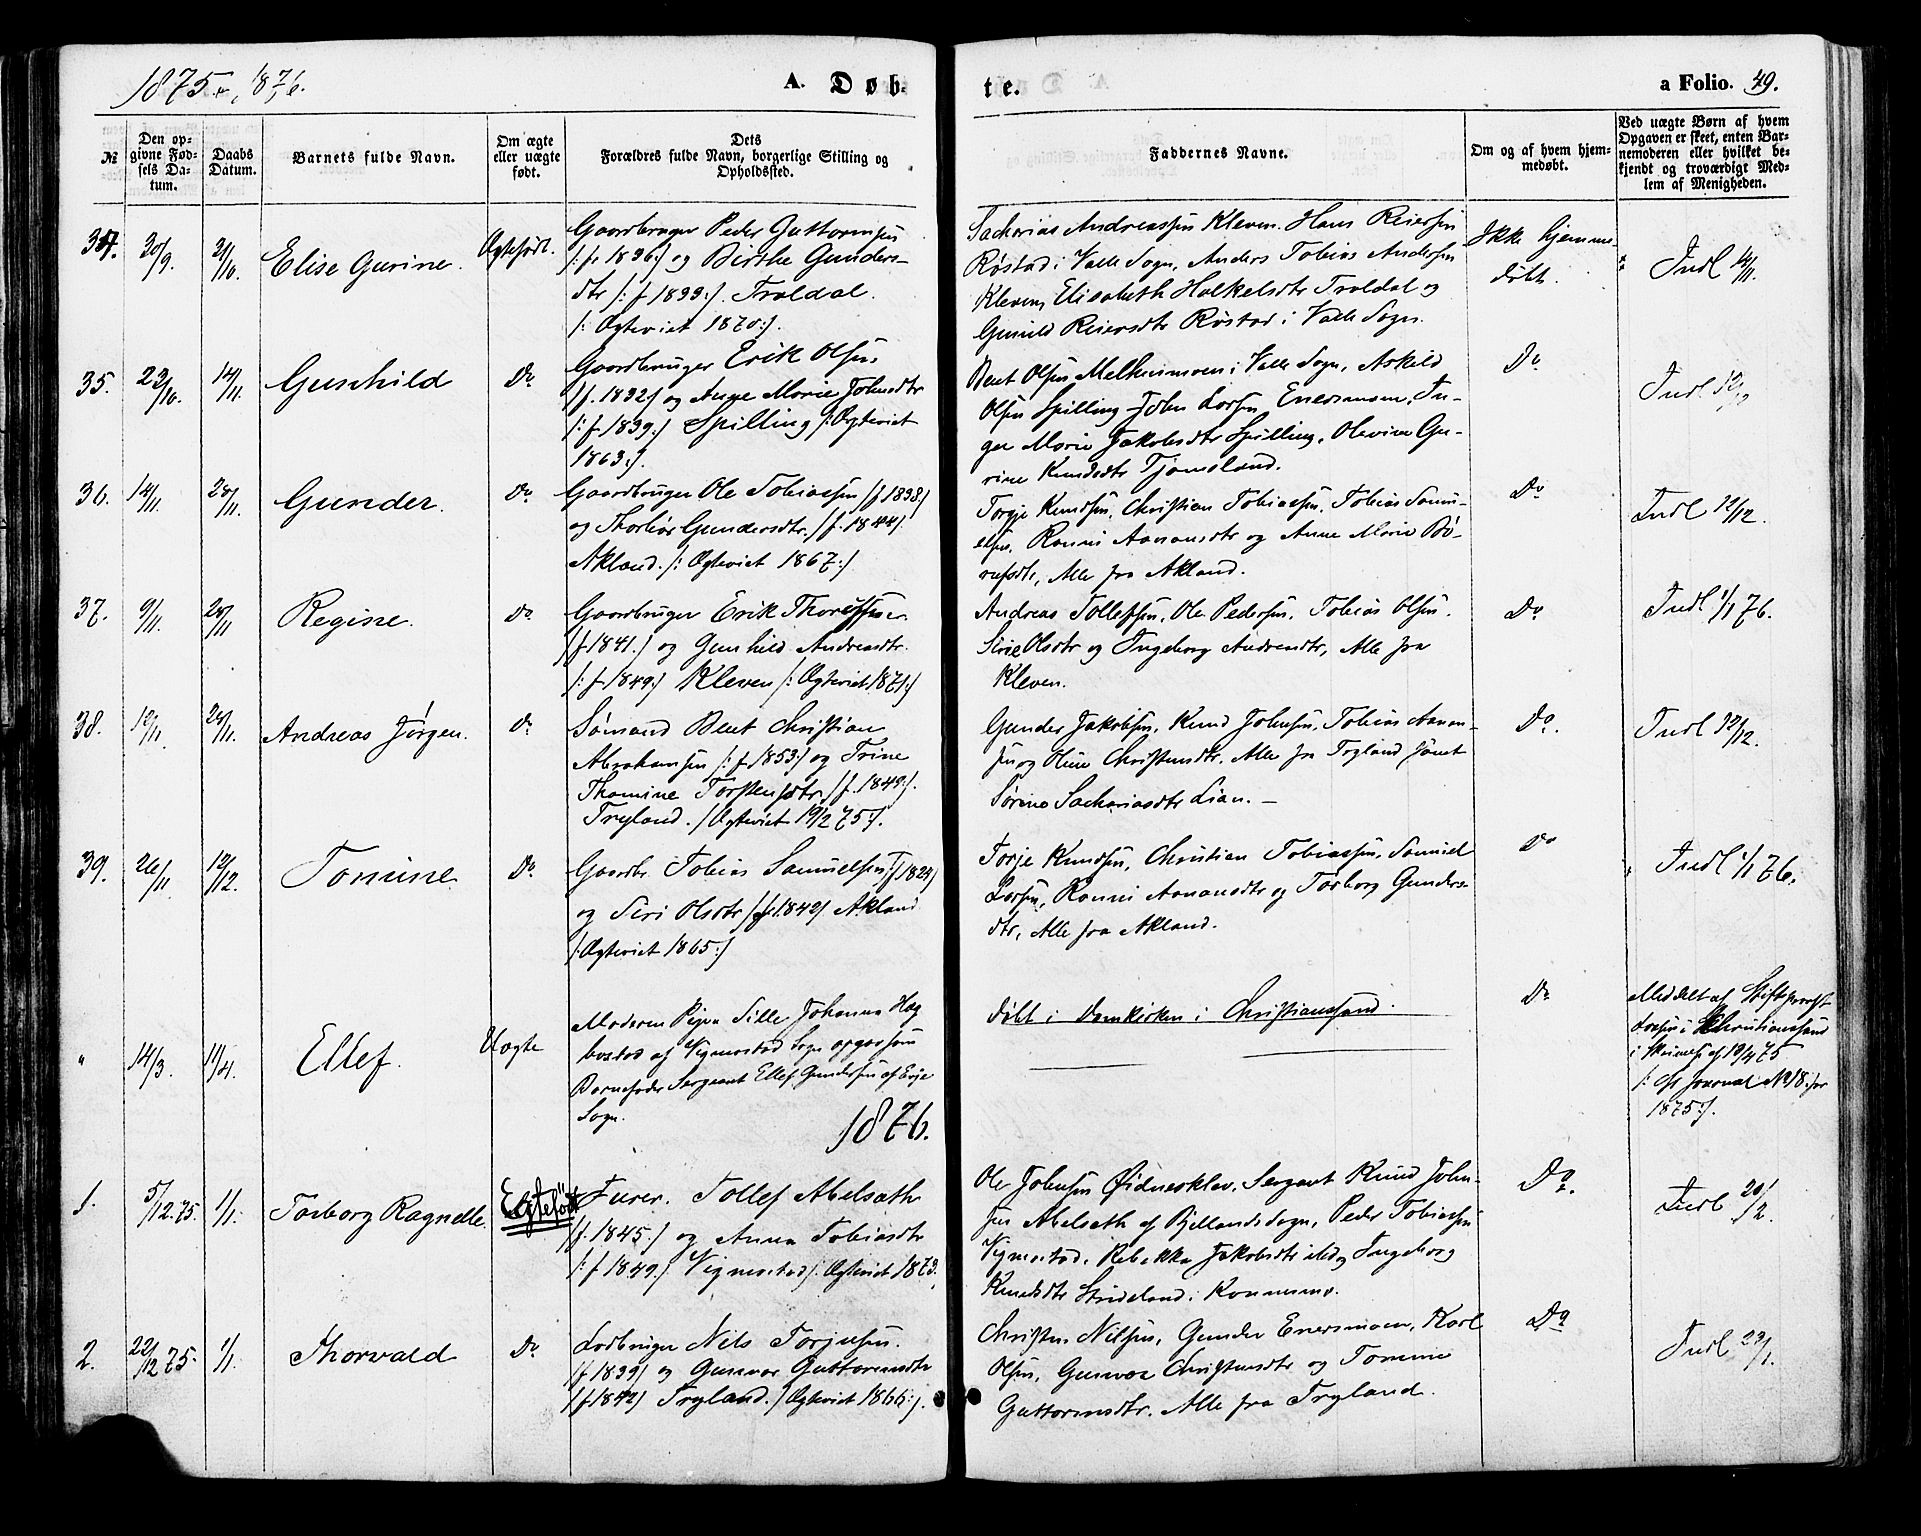 1875 & 1876.
A. Døb-
te.
a Folio. 49.
№
Den opgivne Fødsels Datum.
Daabs Datum.
Barnets fulde Navn.
Om ægte eller uægte født.
Dets Forældres fulde Navn, borgerlige Stilling og Opholdssted.
Faddernes Navne.
Om og af hvem hjemmedøbt.
Ved uægte Børn af hvem Opgaven er skeet, enten Barnemoderen eller hvilket bekjendt og troværdigt Medlem af Menigheden.
30/9.
31/10.
Elise Gurine.
Ægtefødt.
Gaardbruger Peder Guttormsen
og Birthe Gunders-
dtr Troldal.
/: Ægteviet 1870:/.
Sacharias Andreassen Kleven. Hans Reiersen
Røstad i Valle Sogn, Anders Tobias Andersen
Kleven, Elisabeth Holkelsdtr Troldal og
Gunild Reiersdtr Røstad i Valle Sogn.
Ikke hjemme-
døbt.
Indl
35.
23/10.
14/11.
Gunhild
Do
Gaardbruger Erik Olsen
og Anne Marie Johnsdtr
/: f 1839:/ Spilling /: Ægteviet
1863:/.
Bent Olsen Melheimsmoen i Valle Sogn, Askild
Olsen Spilling John Larsen Enersmoen, In-
ger Marie Jakobsdtr Spilling, Olevine Gu-
rine Knudsdtr Tjomsland.
Do
Indl
36.
14/11.
28/11.
Gunder.
Do
Gaardbruger Ole Tobiassen /f 1838/
og Thorbør Gundersdtr. /f. 1844/.
Akland. /: Ægteviet 1867:/
Torje Knudsen, Christian Tobiassen, Tobias Samu-
elsen, Ronni Aanonsdtr og Anne Marie Bø-
Alle fra Akland.
Do
Indl 12/12.
37.
9/11.
28/11
Regine.
Do
Gaardbruger Erik Thorsen
/f 1841./ og Gunhild Andreasdtr.
/: f 1849:/ Kleven /: Ægteviet 1871:/
Andreas Tollefsen, Ole Pedersen, Tobias Olsen.
Sirie Olsdtr og Ingeborg Andreasdtr, Alle fra
Kleven.
Do
Indl 1/1 76.
38.
28/11.
Andreas Jørgen.
Do
Sømand Bent Christian
Abrahamsen /: f 1853:/ og Trine
Thomine Torstensdtr. /f. 1849:/.
Tryland. /Ægteviet 19/2 75:/.
Gunder Jakobsen, Knud Johnsen, Tobias Aanon-
sen og Oline Christensdtr. Alle fra Tryland samt
Sørine Sachariasdtr Lian. —
Do.
Indl 12/12.
39.
26/11
12/12.
Tomine
Do
Gaardbr. Tobias Samuelsen /f 1829/
og Siri Olsdtr /f 1842/ Akland
/: Ægteviet 1865:/
Torje Knudsen, Christian Tobiassen, Samuel
Larsen, Ronni Aanonsdtr og Torborg Gunders-
dtr, Alle fra Akland.
Do
Indl 1/1 76.
"
14/3.
11/4.
Ellef.
Uægte
Moderen Pigen Sille Johanna Hæg
bostad af Vigmostad Sogn opgav som
Barnefader Sergeant Ellef Gundersen af Evje
Sogn.
Døbt i Domkirken i Christianssand.
Do
Meddelt af Stiftsprovst
Larsen i Christianssand
i Skrivelse af 19/4 75
/: cfr Journal No 18 for
1875:/.
1876.
1.
5/12. 75.
1/1.
Torborg Ragnelle.
Egtefødt
Furer. Tollef Abelsæth
/f. 1845./ og Anna Tobiasdtr
/: f 1849./ Vigmostad /: Ægteviet 1873.
Ole Johnsen Øidnesklev, Sergeant Knud John-
sen Abelsæth af Bjellands Sogn, Peder Tobiassen
Vigmostad, Rebekka Jakobsdtr og Ingeborg
Knudsdtr Strideland i Konnesmo.
Do.
Indl 20/2.
2.
22/12 75.
1/1.
Thorvald
Do
Lodbruger Nils Torjusen.
/f 1839/ og Gunvor Guttormsdtr
/f 1842/ Tryland. /Ægteviet 1866:/.
Christen Nilsen, Gunder Enersmoen, Karl
Olsen, Gunvor Christensdtr og Tomine
Guttormsdtr. Alle fra Tryland.
Do
Indl 23/1.